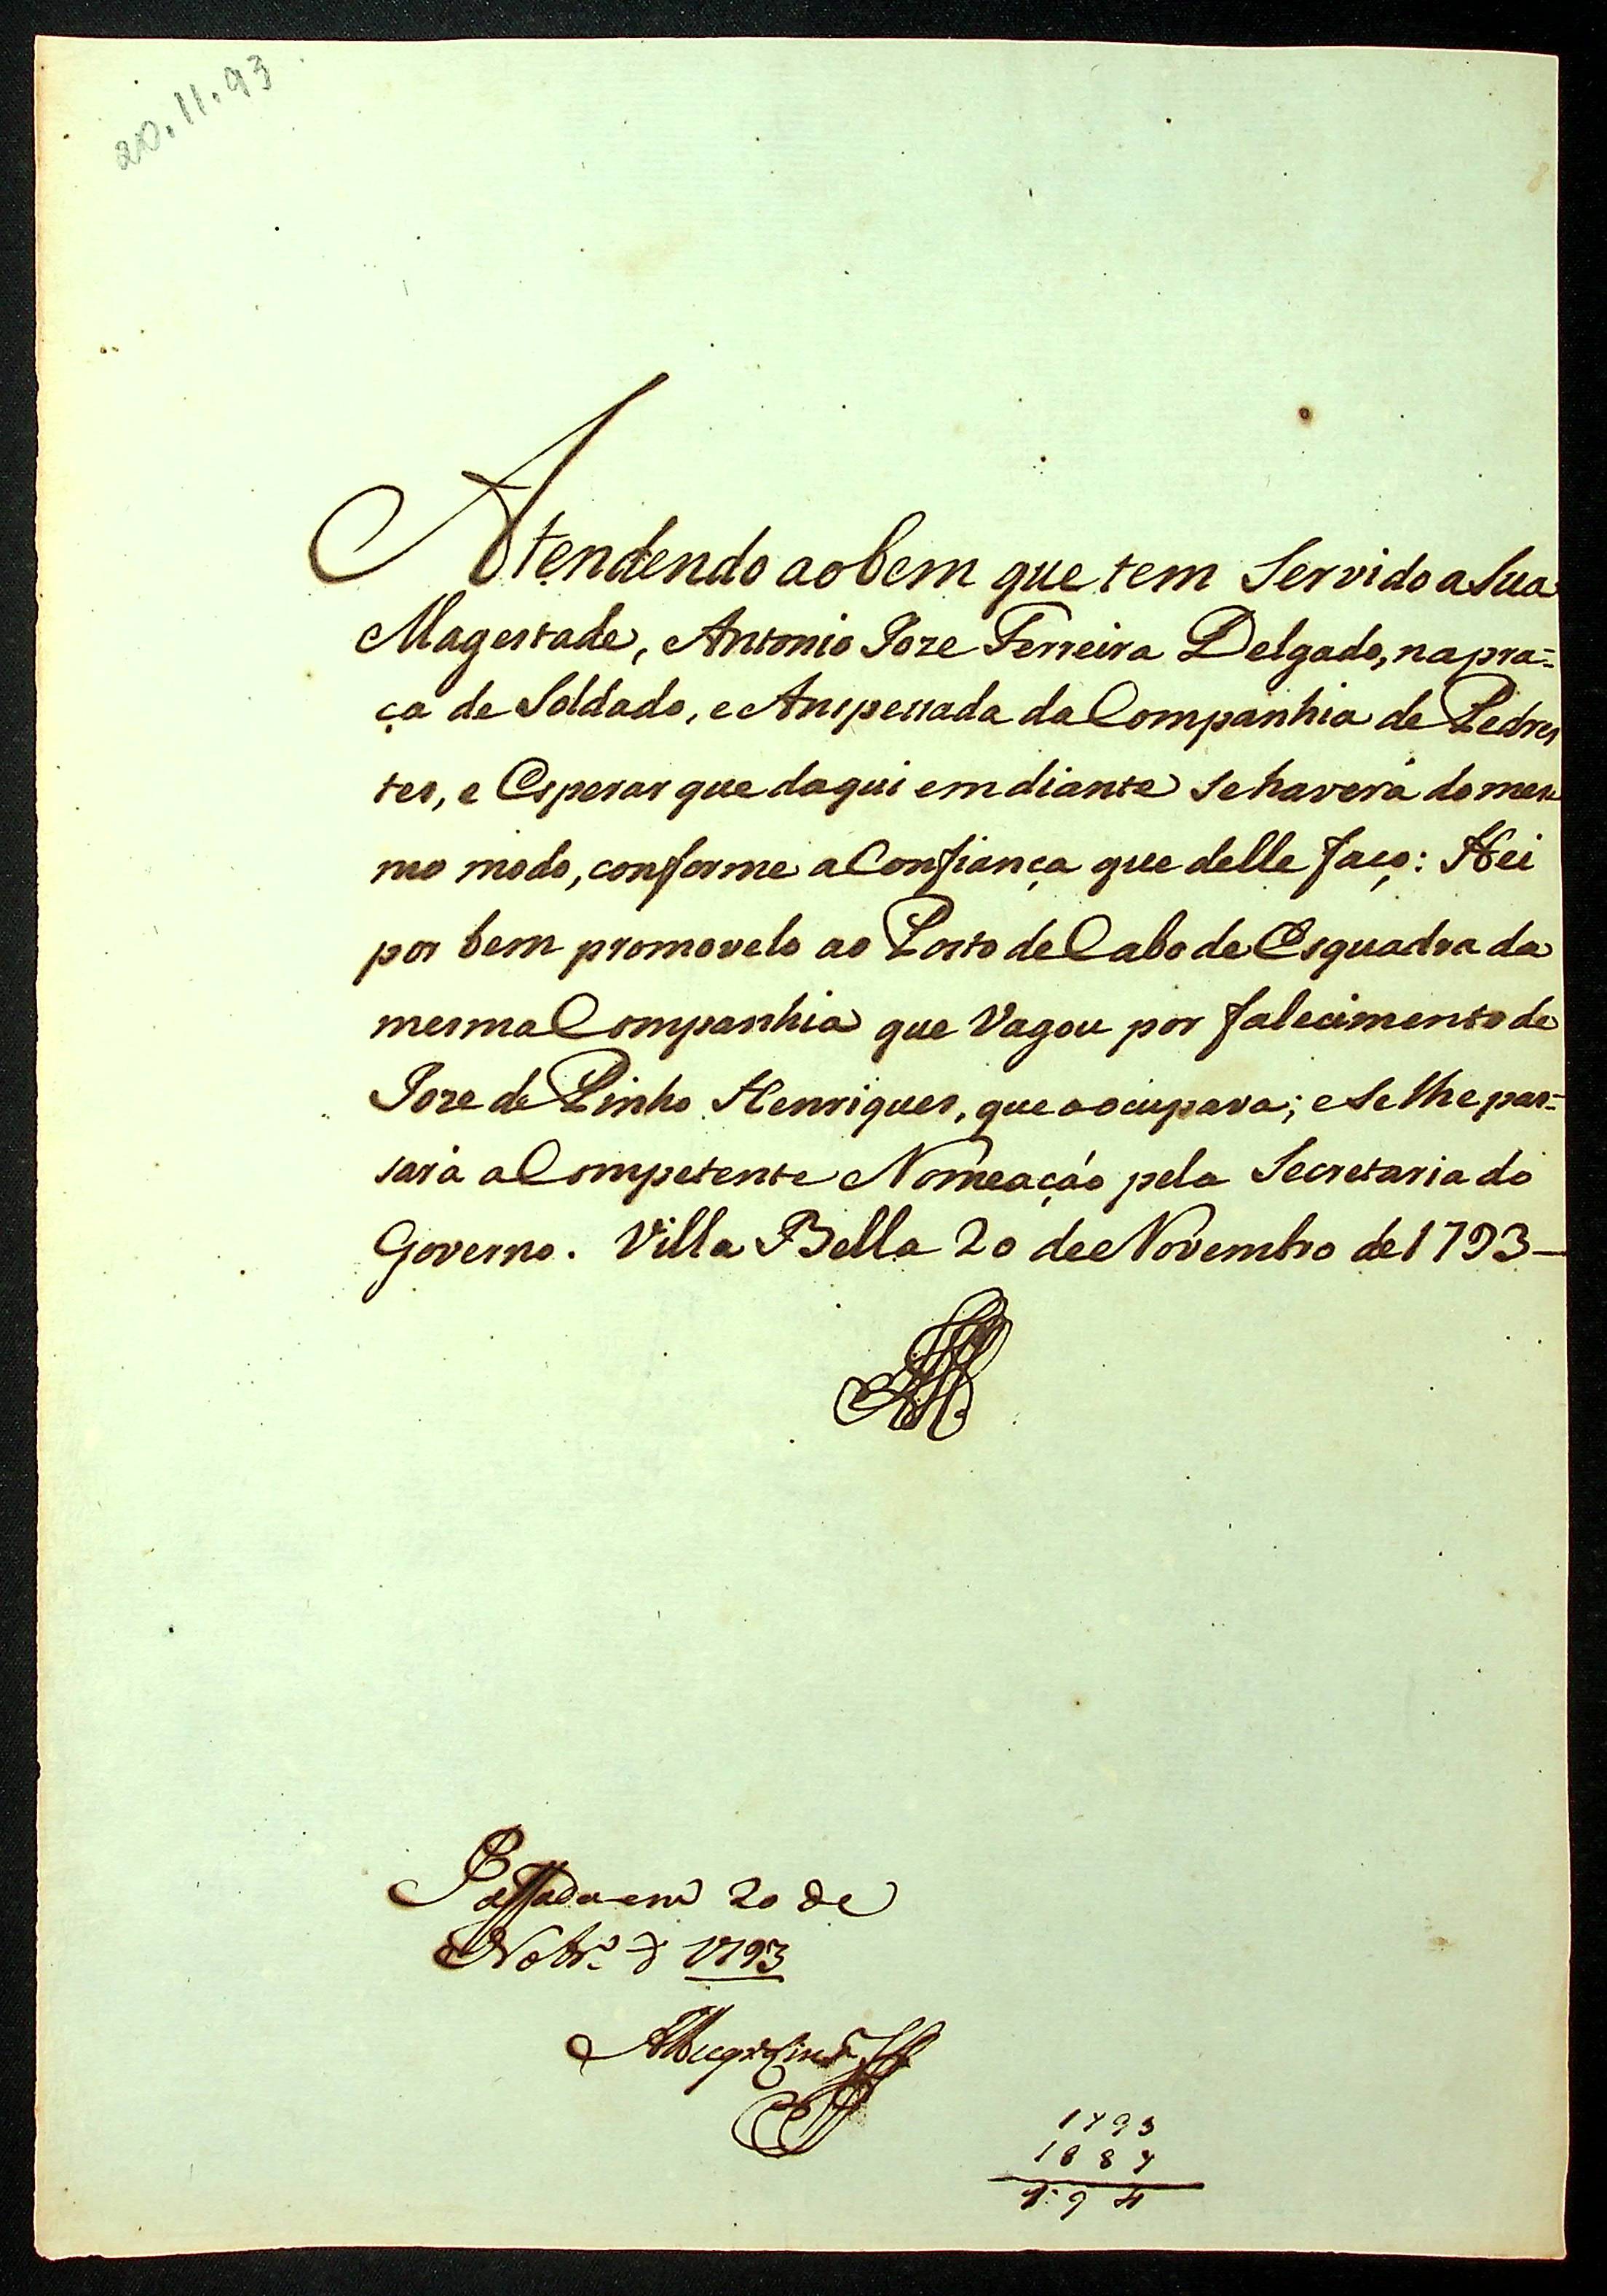 20.11.93
Atendendo ao bem que tem Servido a Sua
Magestade, Antonio Joze Ferreira Delgado, na pra=
ça de Soldado, e Anspessada da Companhia de Pedres
tes, e Esperar que daqui em diante se haverá do mes
mo modo, conforme a Confiança que delle faço: Hei
por bem promovelo ao Posto de Cabo de Esquadra da
mesma Companhia que Vagou por falecimento de
Joze de Pinho Henriques, que o ocupava; e Se lhe pas=
sará a Competente Nomeação pela Secretaria do
Governo. Villa Bella 20 de Novembro de 1793—
Passada em 20 de
Nobr.o de 1793
1793
1887
94